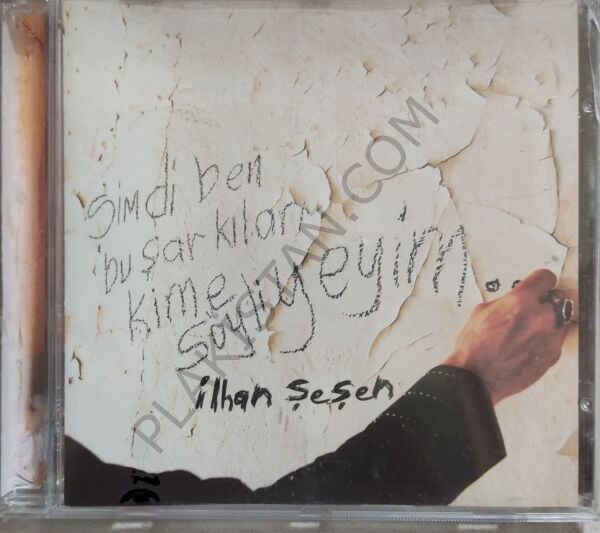 Şimdi ben
bu şarkıları
kime
söyliyeyim...
ilhan Şeşen
PLAKISTAN.COM
26